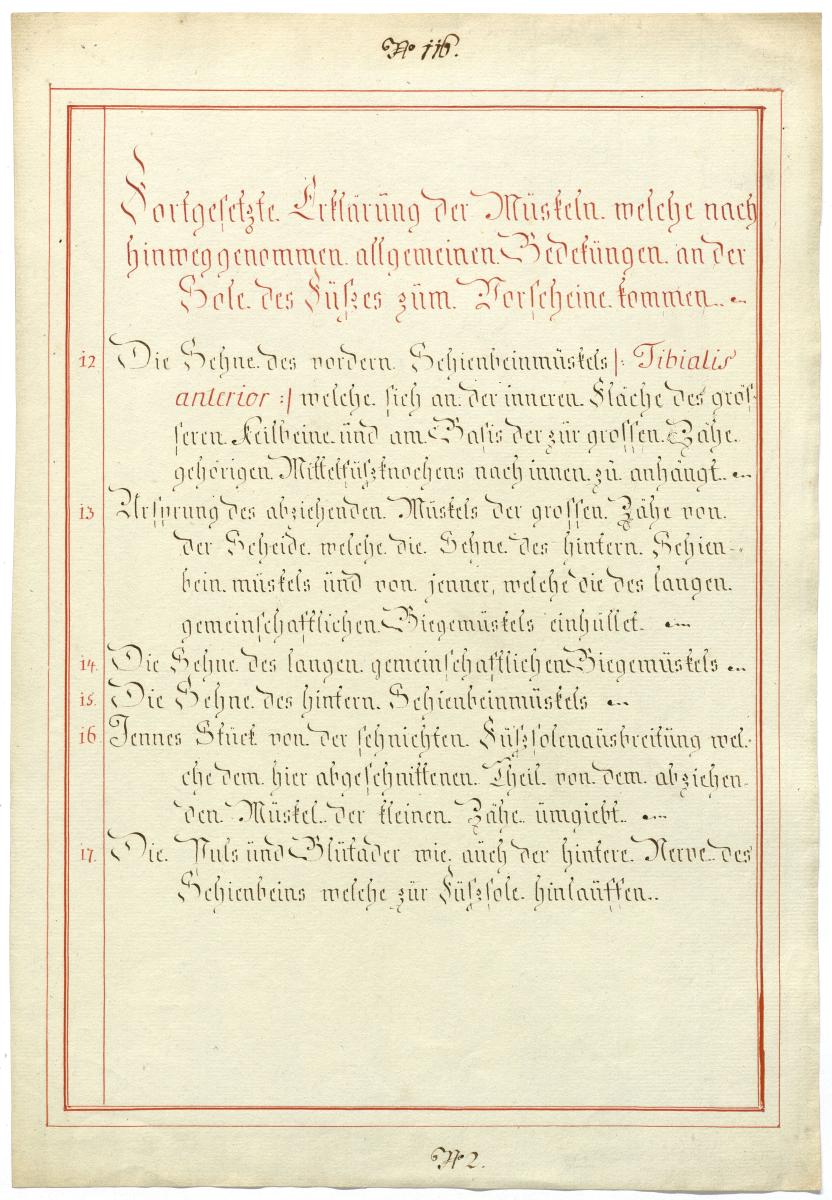 No 116.
Fortgesetzte. Erklärung der Müskeln. welche nach
hinweggenommen. allgemeinen. Bedekungen. an der
Sole. des Füßes züm. Vorscheine. kommen..
12 Die Sehne. des vordern. Schienbeinmüskels |: Tibialis
anterior :| welche. sich an. der inneren. Fläche des grös-
seren. Keilbeine. und am. Basis der zür grossen. Zähe.
gehörigen. Mittelfüszknochens nach innen. zü. anhängt..
13 Ursprung des abziehenden. Müskels der grossen. Zähe von.
der Scheide. welche. die. Sehne. des hintern. Schien-
bein. müskels ünd von. jenner, welche die des langen.
gemeinschaftlichen. Biegemüskels einhüllet.
14. Die Sehne. des langen. gemeinschaftlichen Biegemüskels
15. Die Sehne. des hintern. Schienbeinmüskels
16 Jennes Stück von. der sehnichten. Füszsolenaüsbreitüng wel-
che dem. hier abgeschnittenen. Theil. von. dem. abziehen-
den. Müskel.. der kleinen. Zähe.. ümgiebt..
17. Die. Puls ünd Blütader wie. aüch der hintere. Nerve.. des
Schienbeins welche zür Füszsole. hinlaüffen..
No 2.